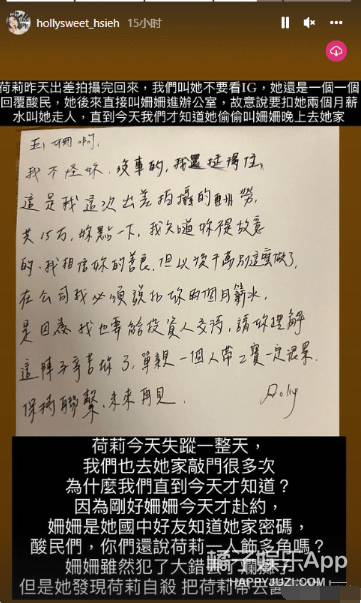 hollysweet_hsieh 15小时
荷莉昨天出差拍攝完回來，我們叫她不要看IG，她還是一個一個
回覆酸民，她後來直接叫姍姍進辦公室，故意說要扣她兩個月薪
水叫她走人，直到今天我們才知道她偷偷叫姍姍晚上去她家
我不怪妳，沒事的，我還挺得住，
這是我這次出差拍攝的酬勞，
共15万，妳點一下，我知道妳不是故意
的，我相信妳的善良，但以後千萬別這麼做了，
在公司我必須說扣妳2個月薪水，
是因為我也要給投資人交待，請妳理解
這陣子辛苦妳了，單親一個人帶2寶一定很累
保持聯繫，未來再見．
Holly
荷莉今天失蹤一整天，
我們也去她家敲門很多次
為什麼我們直到今天才知道？
因為剛好姍姍今天才赴約，
姍姍是她國中好友知道她家密碼，
酸民們，你們還說荷莉一人飾多角嗎？
姍姍雖然犯了大錯
但是她發現荷莉自殺 把荷莉帶去
橘子娱乐App
HAPPYJUZI.COM